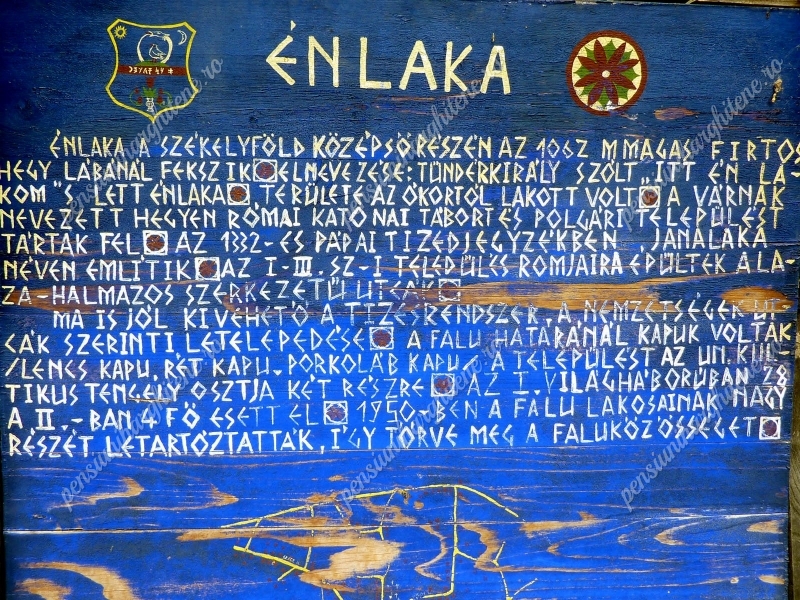 ÉNLAKA
ÉNLAKA A SZÉKELYFÖLD KÖZÉPSŐ RÉSZÉN AZ 1062 M MAGAS FIRTOS
HEGY LÁBÁNÁL FEKSZIK ELNEVEZÉSE: TÜNDÉRKIRÁLY SZÓLT „ITT ÉN LA-
KOM" S LETT ÉNLAKA TERÜLETE AZ ÓKORTÓL LAKOTT VOLT A VÁRNAK
NEVEZETT HEGYEN RÓMAI KATONAI TÁBORT ÉS POLGÁRI TELEPÜLÉST
TÁRTAK FEL AZ 1332-ES PÁPAI TIZEDJEGYZÉKBEN JANALAKA
NÉVEN EMLÍTIK AZ I-III. SZ-I TELEPÜLÉS ROMJAIRA ÉPÜLTEK A LA-
ZA-HALMAZOS SZERKEZETŰ UTCÁK
MA IS JÓL KIVEHETŐ A TÍZESRENDSZER, A NEMZETSÉGEK UT
CÁK SZERINTI LETELEPEDÉSE A FALU HATÁRÁNÁL KAPUK VOLTAK
/LENCS KAPU, RÉT KAPU, PORKOLÁB KAPU/ A TELEPÜLÉST AZ UN. KUL
TIKUS TENGELY OSZTJA KÉT RÉSZRE AZ I. VILÁGHÁBORÚBAN 28
A II.-BAN 4 FŐ ESETT EL 1950-BEN A FALU LAKOSAINAK NAGY
RÉSZÉT LETARTÓZTATTÁK, ÍGY TÖRVE MEG A FALUKÖZÖSSÉGET
pensiuniharghitene.ro
pensiuniharghitene.ro
pensiuniharghitene.ro
pensiuniharghitene.ro
pensiuniharghitene.ro
pensiuniharghitene.ro